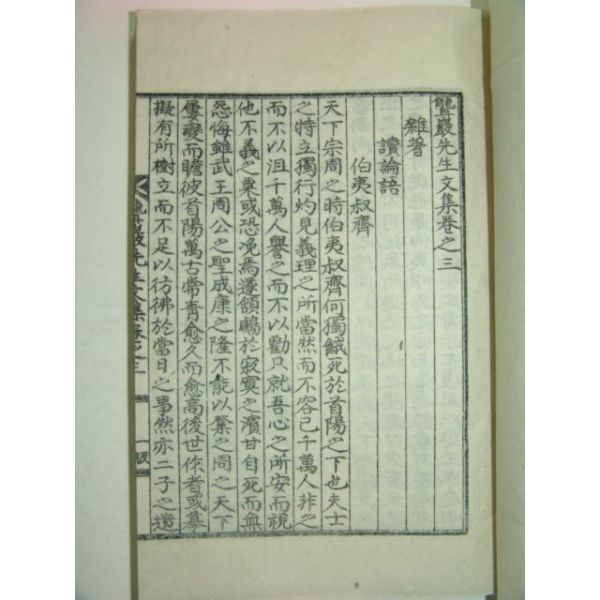 聾巖先生文集卷之三
雜著
讀論語
伯夷叔齊
天下宗周之時伯夷叔齊何獨餓死於首陽之下也夫士
之特立獨行灼見義理之所當然而不容已千萬人非之
而不以沮千萬人譽之而不以勸只就吾心之所安而視
他不義之粟或恐浼焉遂頷顑於寂寞之濱甘自死而無
怨悔雖武王周公之聖成康之隆不能以棄之周之天下
屢變而瞻彼首陽萬古常靑愈久而愈高後世作者或摹
擬有所樹立而不足以彷彿於當日之事然亦二子之遺
聾巖先生文集卷之三
一
版